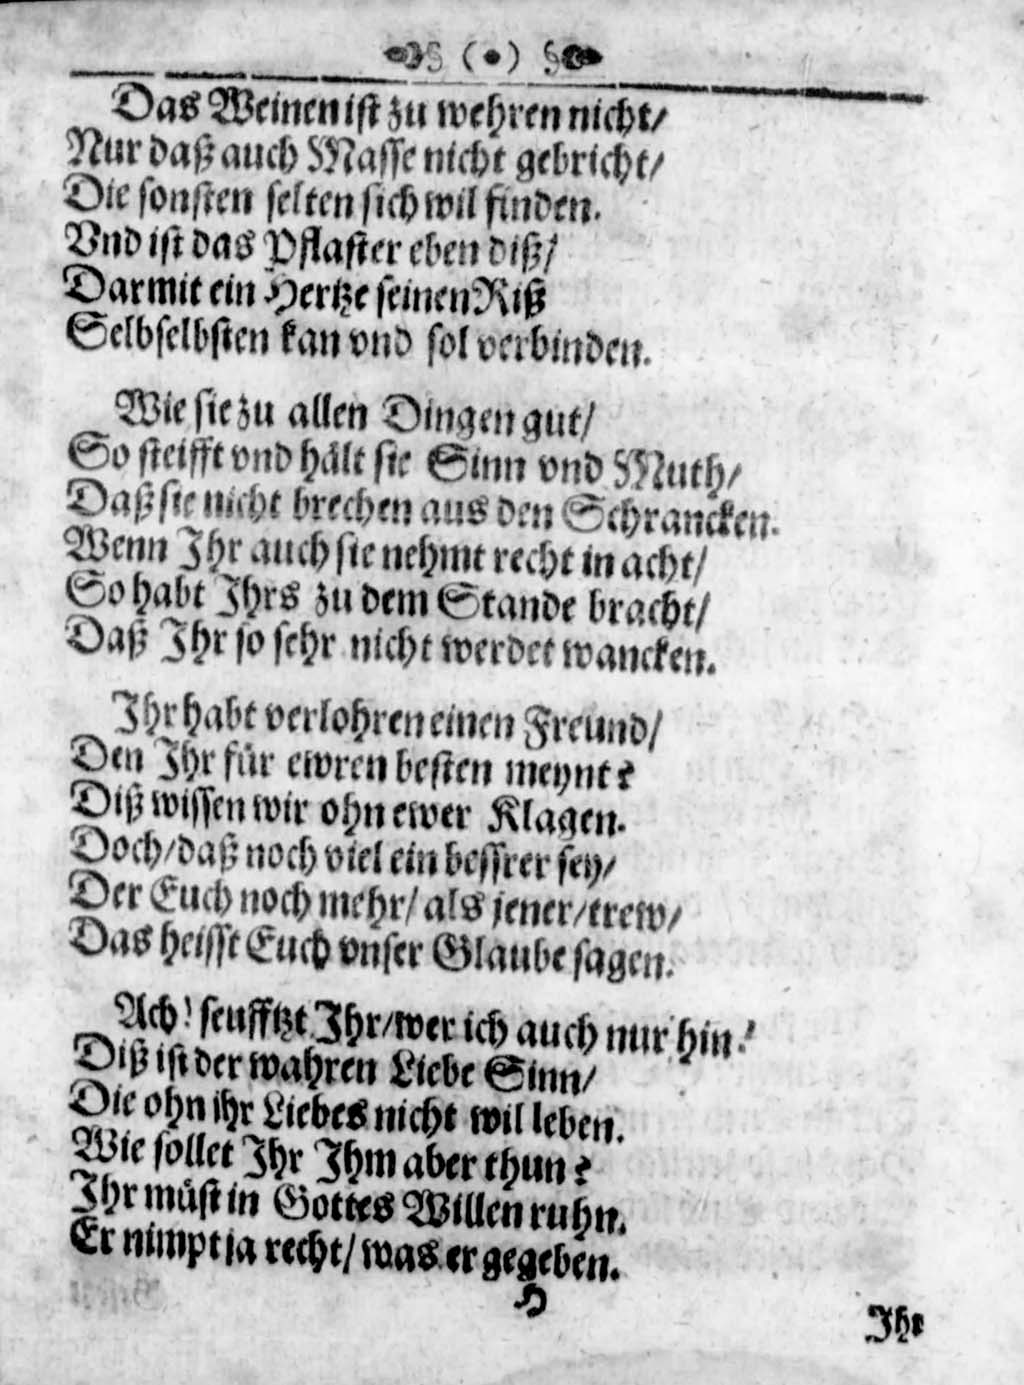 Das Weinen ist zu wehren nicht/
Nur daß auch Masse nicht gebricht/
Die sonsten selten sich wil finden.
Vnd ist das Pflaster eben diß/
Darmit ein Hertze seinen Riß
Selbselbsten kan vnd sol verbinden.
Wie sie zu allen Dingen gut/
So steifft vnd hält sie Sinn vnd Muth/
Daß sie nicht brechen aus den Schrancken.
Wenn Ihr auch sie nehmt recht in acht/
So habt Ihrs zu dem Stande bracht/
Daß Ihr so sehr nicht werdet wancken.
Ihr habt verlohren einen Freund/
Den Ihr für ewren besten meynt?
Diß wissen wir ohn ewer Klagen.
Doch/daß noch viel ein bessrer sey/
Der Euch noch mehr/ als jener/trew/
Das heisst Euch vnser Glaube sagen.
Ach! seufftzt Ihr/wer ich auch nur hin!
Diß ist der wahren Liebe Sinn/
Die ohn ihr Liebes nicht wil leben.
Wie sollet Ihr Ihm aber thun?
Ihr müst in Gottes Willen ruhn.
Er nimpt ja recht/ was er gegeben.
H
Ihr